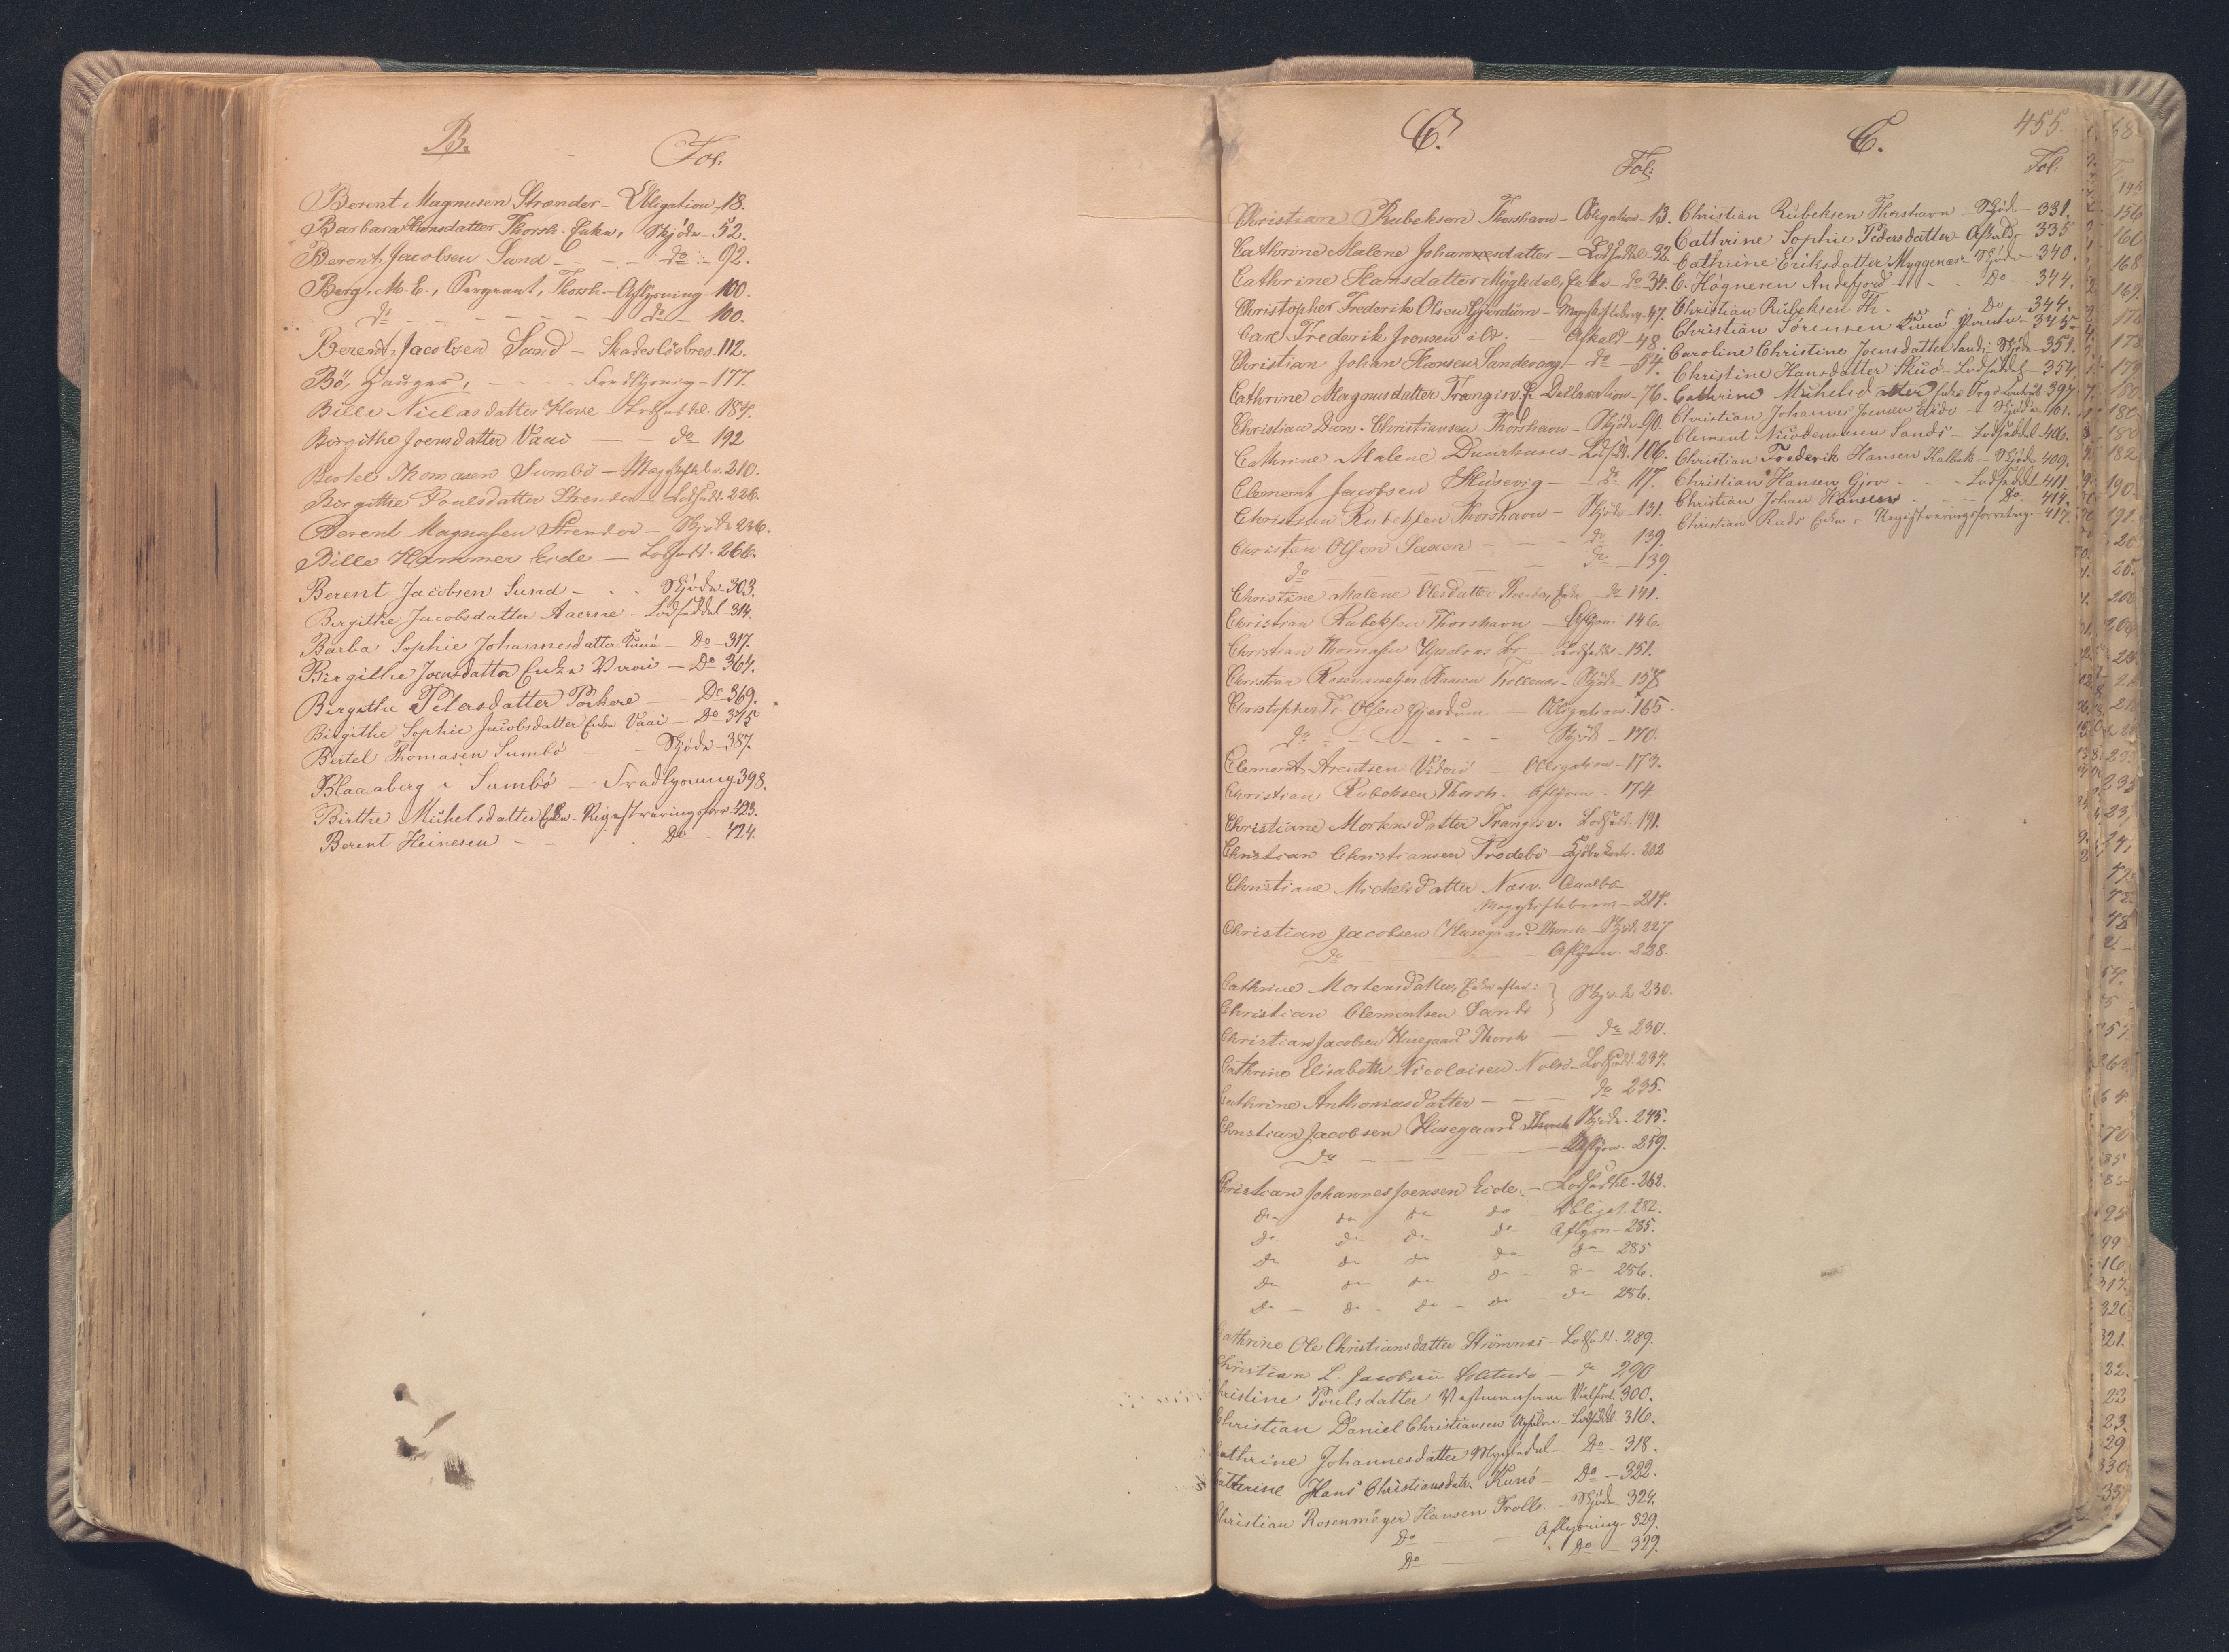 B.
Fol.
Berent Magnusen Strænder - Obligation - 18.
Barbara Hansdatter Thorsh. Enke, Skjöde - 52.
Berent Jacobsen Sund - - - do - 92.
Berg, M. E., Sergeant, Thorsh. - Aflysning - 100.
do - - - - - do - 100.
Berent Jacobsen Sund - Skadeslösbrev. 112.
Bö, Hauger, - - - Fredlysning - 177.
Bille Niclasdatter Lodseddel. 184.
Birgithe Joensdatter Vaai - - do 192
Bertel Thomasen Sumbö - Mageskiftebr. 210.
Birgithe Poulsdatter Strender Lodsedl. 226.
Berent Magnussen Strender - Skjöde 236.
Bille Hammer Eide - Lodsedl. 266.
Berent Jacobsen Sund - . . Skjöde 303.
Birgithe Jacobsdatter Aaerne - Lodseddel 314.
Barba Sophie Johannesdatter Kunö - Do - 317.
Birgithe Joensdatter Enke Vaai - Do 364.
Birgithe Petersdatter Porkere - Do 369.
Birgithe Sophie Jacobsdatter Enke Vaai - Do 375
Bertel Thomasen Sumbö - - Skjöde 387.
Blaaberg i Sumbö - Fredlysning 398.
Birthe Michelsdatter Enke - Registreringsforr 423.
Berent Heinesen - - . . Do - 424.
C.
Fol:
Christian Rubeksen Thorshavn - Obligation - 13.
Cathrine Malene Johannesdatter - Lodseddel - 32
Cathrine Hansdatter Mygledal, Enke - do - 34.
Christopher Frederik Olsen Gjerdum - Mageskiftebrev. 47.
Carl Frederik Joensen - Afkald - 48.
Christian Johan Hansen Sandevaag - do - 54.
Cathrine Magnusdatter Trangisv. Deklaration - 76.
Christian Dan. Christiansen Thorshavn - Skjöde - 90.
Cathrine Malene Duurhuus - Lodsedl. 106.
Clement Jacobsen Husevig - - do 117.
Christian Rubeksen Thorshavn - Skjöde - 131.
Christen Olsen Saxen - - - do 139.
do - - - do - 139.
Christine Malene Olesdatter Enke - do 141.
Christian Rubeksen Thorshavn - Aflysn: 146.
Christian Thomassen - Lodseddel - 151.
Christian Rosenmeyer Hansen Trollenæs - Skjöde - 158
Christopher Fr Olsen Gjerdum - Obligation - 165.
do - - - - Skjöde - 170.
Clement Arentsen Viderö - Obligation - 173.
Christian Rubeksen Thorsh. Aflysn. 174.
Christiane Mortensdatter Trangisv. Lodsedl. 191.
Christian Christiansen Frodebö - 202
Christiane Michelsdatter Næsv. Qualbö
Mageskiftebrev - 214.
Christian Jacobsen Husegaard Thorsh - Skjöd. 227
do - - - Aflysn. 228.
Cathrine Mortensdatter, Enke efter: } Skjöde 230.
Christian Clementsen Sand
Christian Jacobsen Husegaard Thorsh - do 230.
Cathrine Elisabeth Nicolaisen Nolsö - Lodsedl 234.
Cathrine Anthoniusdatter - - - do 235.
Christian Jacobsen Husegaard Thorsh Skjöde. 245.
do - - - Aflysn. 259.
Christian Johannes Joensen Eide - Lodseddel. 262.
do do do do Obligat. 282.
do do do do Aflysn - 285.
do do do do do 285
do do do do - do - 256.
do - do - do - do - do 286.
Cathrine Ole Christiansdatter Strömnæs - Lodsedl. 289.
Christian L. Jacobsen Solitude - do 290
Christine Poulsdatter Vestmannhavn 300.
Christian Daniel Christiansen - Lodseddel 316.
Cathrine Johannesdatter Mygledal - Do - 318.
Cathrine Hans Christiansdatr. Kunö - Do - 322.
Christian Rosenmeyer Hansen Trolln. - Skjöde 324.
Do - Aflysning - 329.
Do - . Do - 329.
C.
455.
Fol.
Christian Rubeksen Thorshavn - Skjöde - 331.
Cathrine Sophie Pedersdatter - Afkald - 335
Cathrine Eriksdatter Myggenæs - Skjöde - 340.
C. Högnesen Andefjord - - Do - 344.
Christian Rubeksen Th. - Do - 344.
Christian Sörensen Kunö - 345
Caroline Christine Joensdatter Sand - Skjöde - 351.
Christine Hansdatter Skuö - Lodseddel - 354.
Cathrine Michelsdatter 397
Christian Johannes Joensen Eide - Skjöde 401.
Clement Nicodemusen Sand - Lodseddel - 406.
Christian Frederik Hansen Kalbak - Skjöde 409.
Christian Hansen Gjov - - - Lodseddel 411.
Christian Johan Hansen - - Do - 414.
Christian Ruds Enke - Registreringsforretng. - 417.